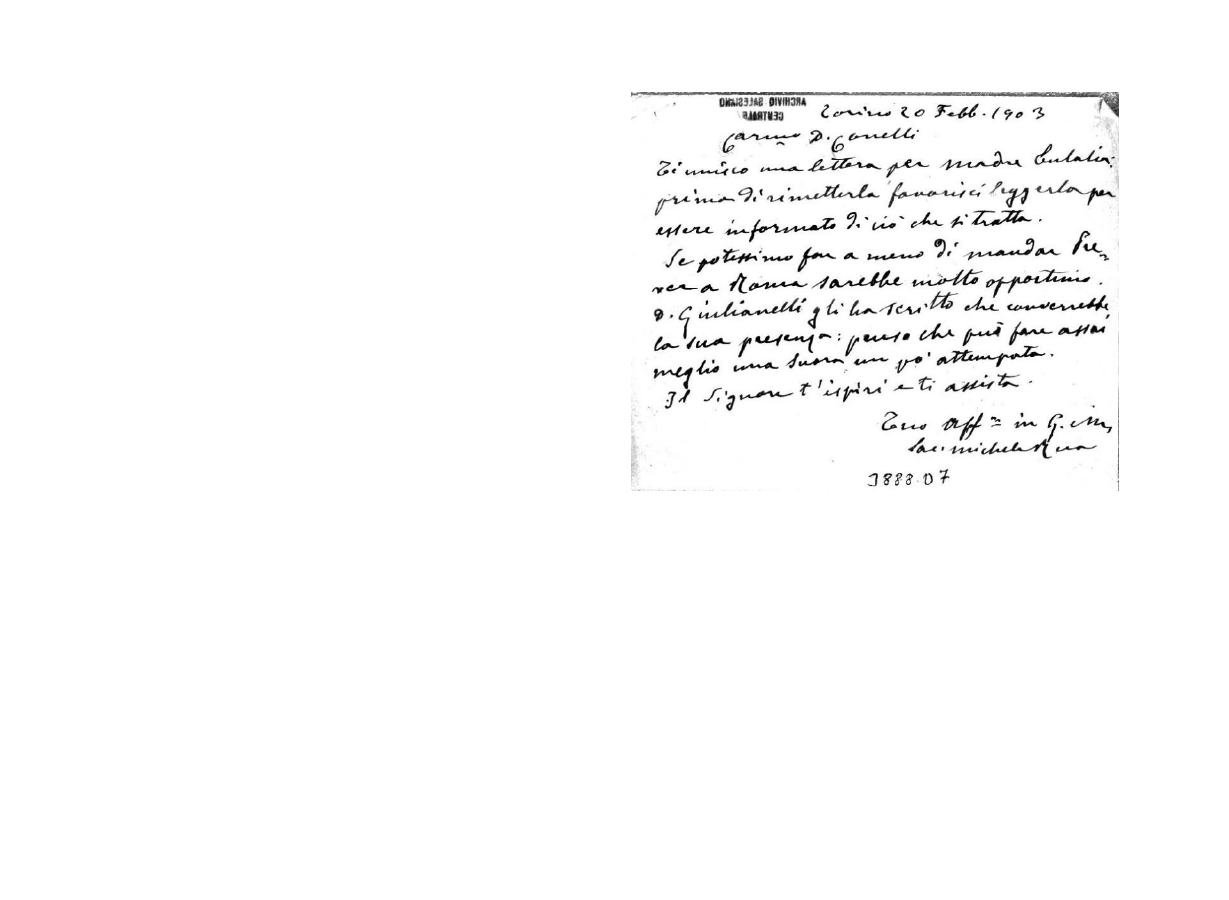 ARCHIVIO SALESIANO
CENTRALE
Torino 20 Febb. 1903
Carmo D. Conelli
Ti unisco una lettera per madre Eulalia:
prima di rimetterla favorisci leggerla per
essere informato di ciò che si tratta.
Se potessimo far a meno di mandar Pre-
ver a Roma sarebbe molto opportuno.
D. Giulianelli gli ha scritto che converrebbe
la sua presenza: penso che può fare assai
meglio una suora un po' attempata.
Il Signore t'ispiri e ti assista.
Tuo aff.mo in G. M,
Sac. Michele Rua
3888 D7